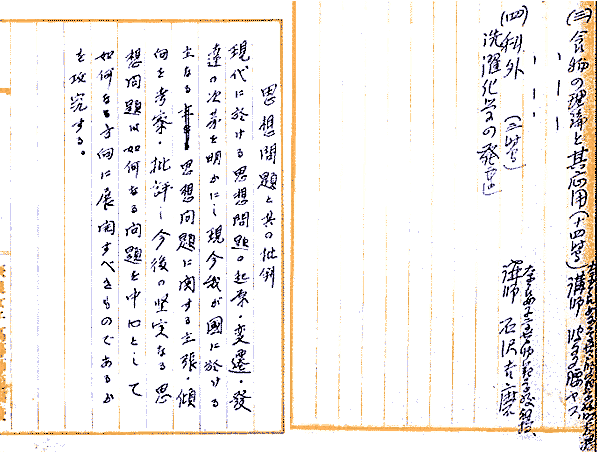 (三)食物の理論と其応用(十四時)
講師
(四)科外(三時)
洗濯化学の発達
講師 石沢吉麿
思想問題と其の批判
現代に於ける思想問題の起原・変遷・發
達の次第を明かにし現今我が國に於ける
主なる思想問題に関する主張・傾
向を考察・批評し今後の堅実なる思
想問題は如何なる問題を中心として
如何なる方向に展開すべきものであるか
を攻究する。